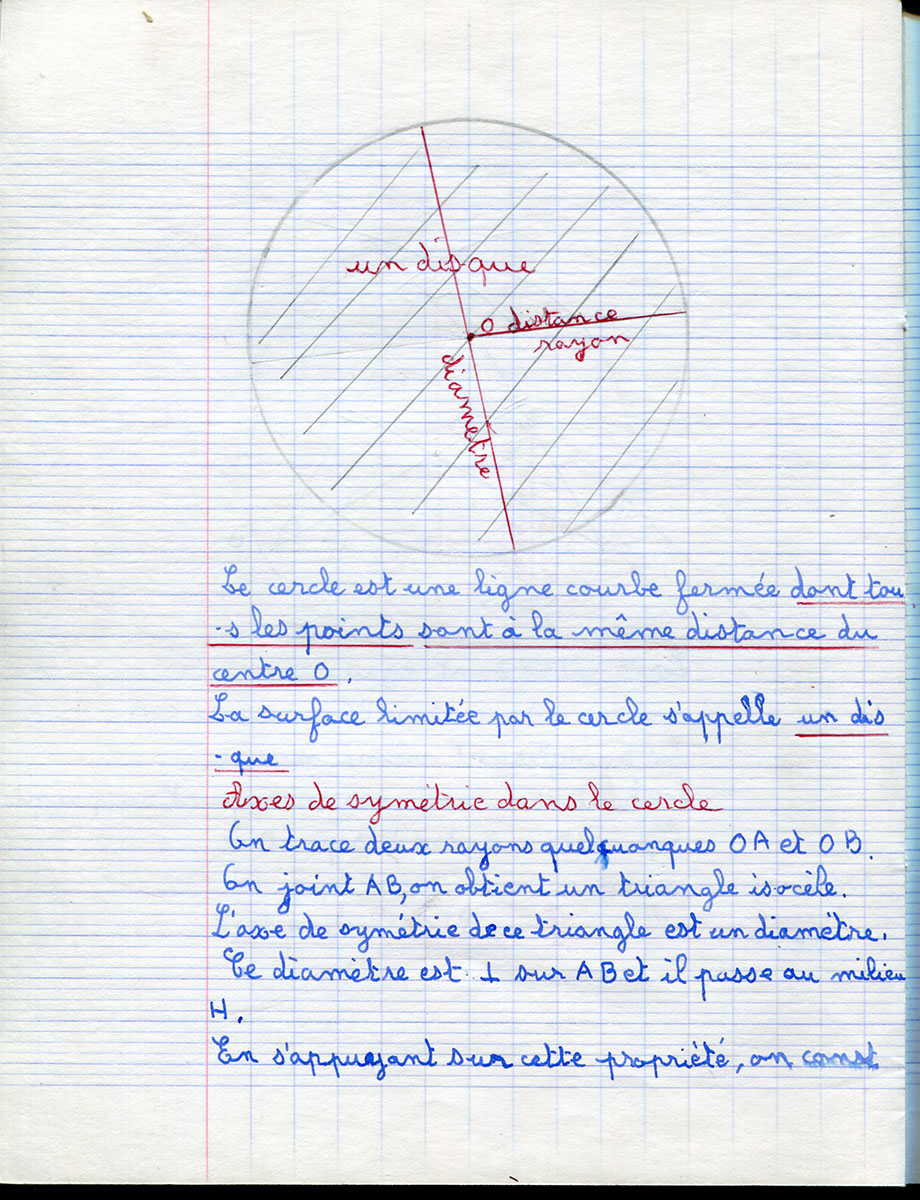 un disque
O distance
rayon
diamètre
Le cercle est une ligne courbe fermée dont tou
-s les points sont à la même distance du
centre O.
La surface limitée par le cercle s'appelle un dis
-que
Axes de symétrie dans le cercle
On trace deux rayons quelquonques OA et OB.
On joint AB, on obtient un triangle isocèle.
L'axe de symétrie de ce triangle est un diamétre.
Ce diamètre est ⊥ sur AB et il passe au milieu
H.
En s'appuyant sur cette propriété, on const